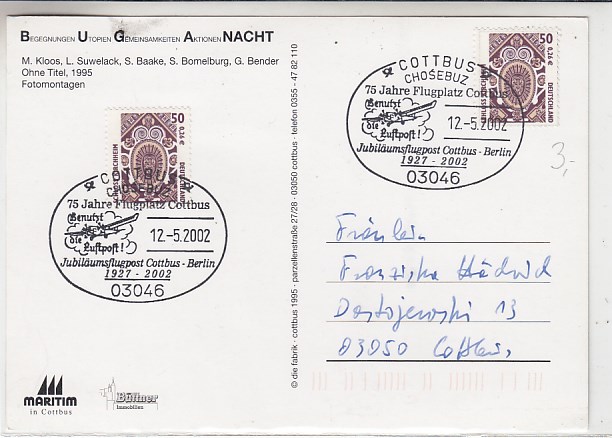 BEGEGNUNGEN UTOPIEN GEMEINSAMKEITEN AKTIONEN NACHT
M. Kloos, L. Suwelack, S. Baake, S. Bomelburg, G. Bender
Ohne Titel, 1995
Fotomontagen
50
0,26 €
DEUTSCHLAND
COTTBUS
CHOŚEBUZ
75 Jahre Flugplatz Cottbus
Benutzt
die
Luftpost!
12.-5.2002
Jubiläumsflugpost Cottbus - Berlin
1927 - 2002
03046
50
0,26 €
DEUTSCHLAND
COTTBUS
CHOŚEBUZ
75 Jahre Flugplatz Cottbus
Benutzt
die
Luftpost!
12.-5.2002
Jubiläumsflugpost Cottbus - Berlin
1927 - 2002
03046
3,-
© die fabrik · cottbus 1995 · parzellenstraße 27/28 · 03050 cottbus · telefon 0355 - 47 82 110
Fräulein
Franziska
Dostojewski 13
03050 Cottbus
MARITIM
in Cottbus
Büttner
Immobilien